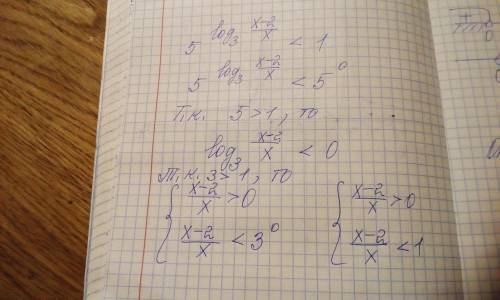 5^{log_3 \frac{x-2}{x}} < 1
5^{log_3 \frac{x-2}{x}} < 5^0
Т.к. 5>1, то
log_3 \frac{x-2}{x} < 0
Т.к. 3>1, то
{ \frac{x-2}{x} > 0 { \frac{x-2}{x} > 0
{ \frac{x-2}{x} < 3^0 { \frac{x-2}{x} < 1